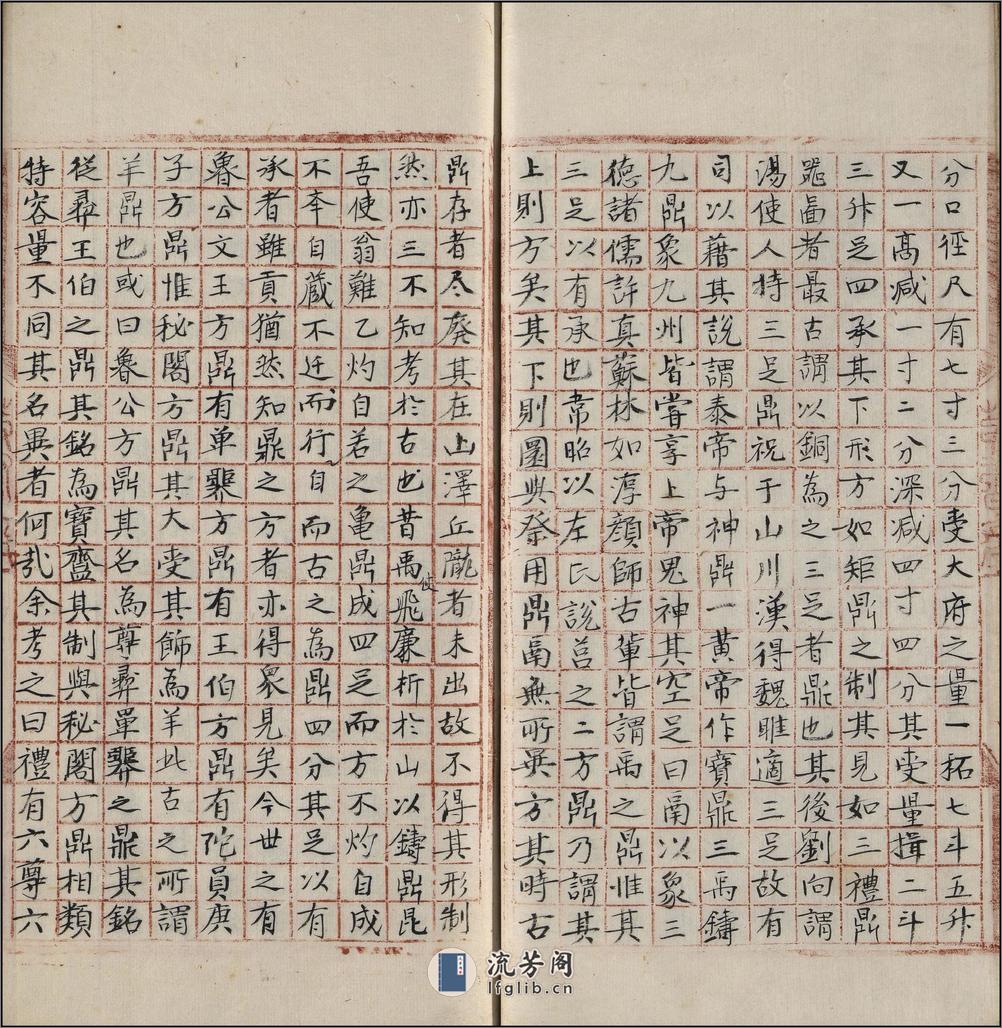 分口徑尺有七寸三分受大府之量一拓七斗五升
又一高减一寸二分深减四寸四分其受量揖二斗
三升足四承其下形方如矩鼎之制其見如三禮鼎
器啚者最古謂以銅為之三足者鼎也其後劉向謂
湯使人持三足鼎祝于山川漢得魏脽適三足故有
司以藉其說謂泰帝与神鼎一黄帝作寶鼎三禹鑄
九鼎象九州皆甞享上帝鬼神其空足曰鬲以象三
德諸儒許真蘇林如淳顔師古軰皆謂禹之鼎惟其
三足以有承也韋昭以左氏說莒之二方鼎乃謂其
上則方矣其下則圜與祭用鼎鬲無所異方其時古
鼎存者尽廢其在山澤丘隴者未出故不得其形制
然亦三不知考於古也昔禹使飛廉析於山以鑄鼎昆
吾使翁難乙灼自若之亀鼎成四足而方不灼自成
不李自藏不迁而行自而古之為鼎四分其足以有
承者雖貢猶然知鼎之方者亦得衆見矣今世之有
魯公文王方鼎有单䢼方鼎有王伯方鼎有陀員庚
子方鼎惟秘閣方鼎其大受其飾為羊此古之所謂
羊鼎也或曰魯公方鼎其名為尊彛單䢼之鼎其銘
從彛王伯之鼎其銘為寶齍其制與秘閣方鼎相類
特容量不同其名異者何㢤余考之曰禮有六尊六
流芳阁
lfglib.cn